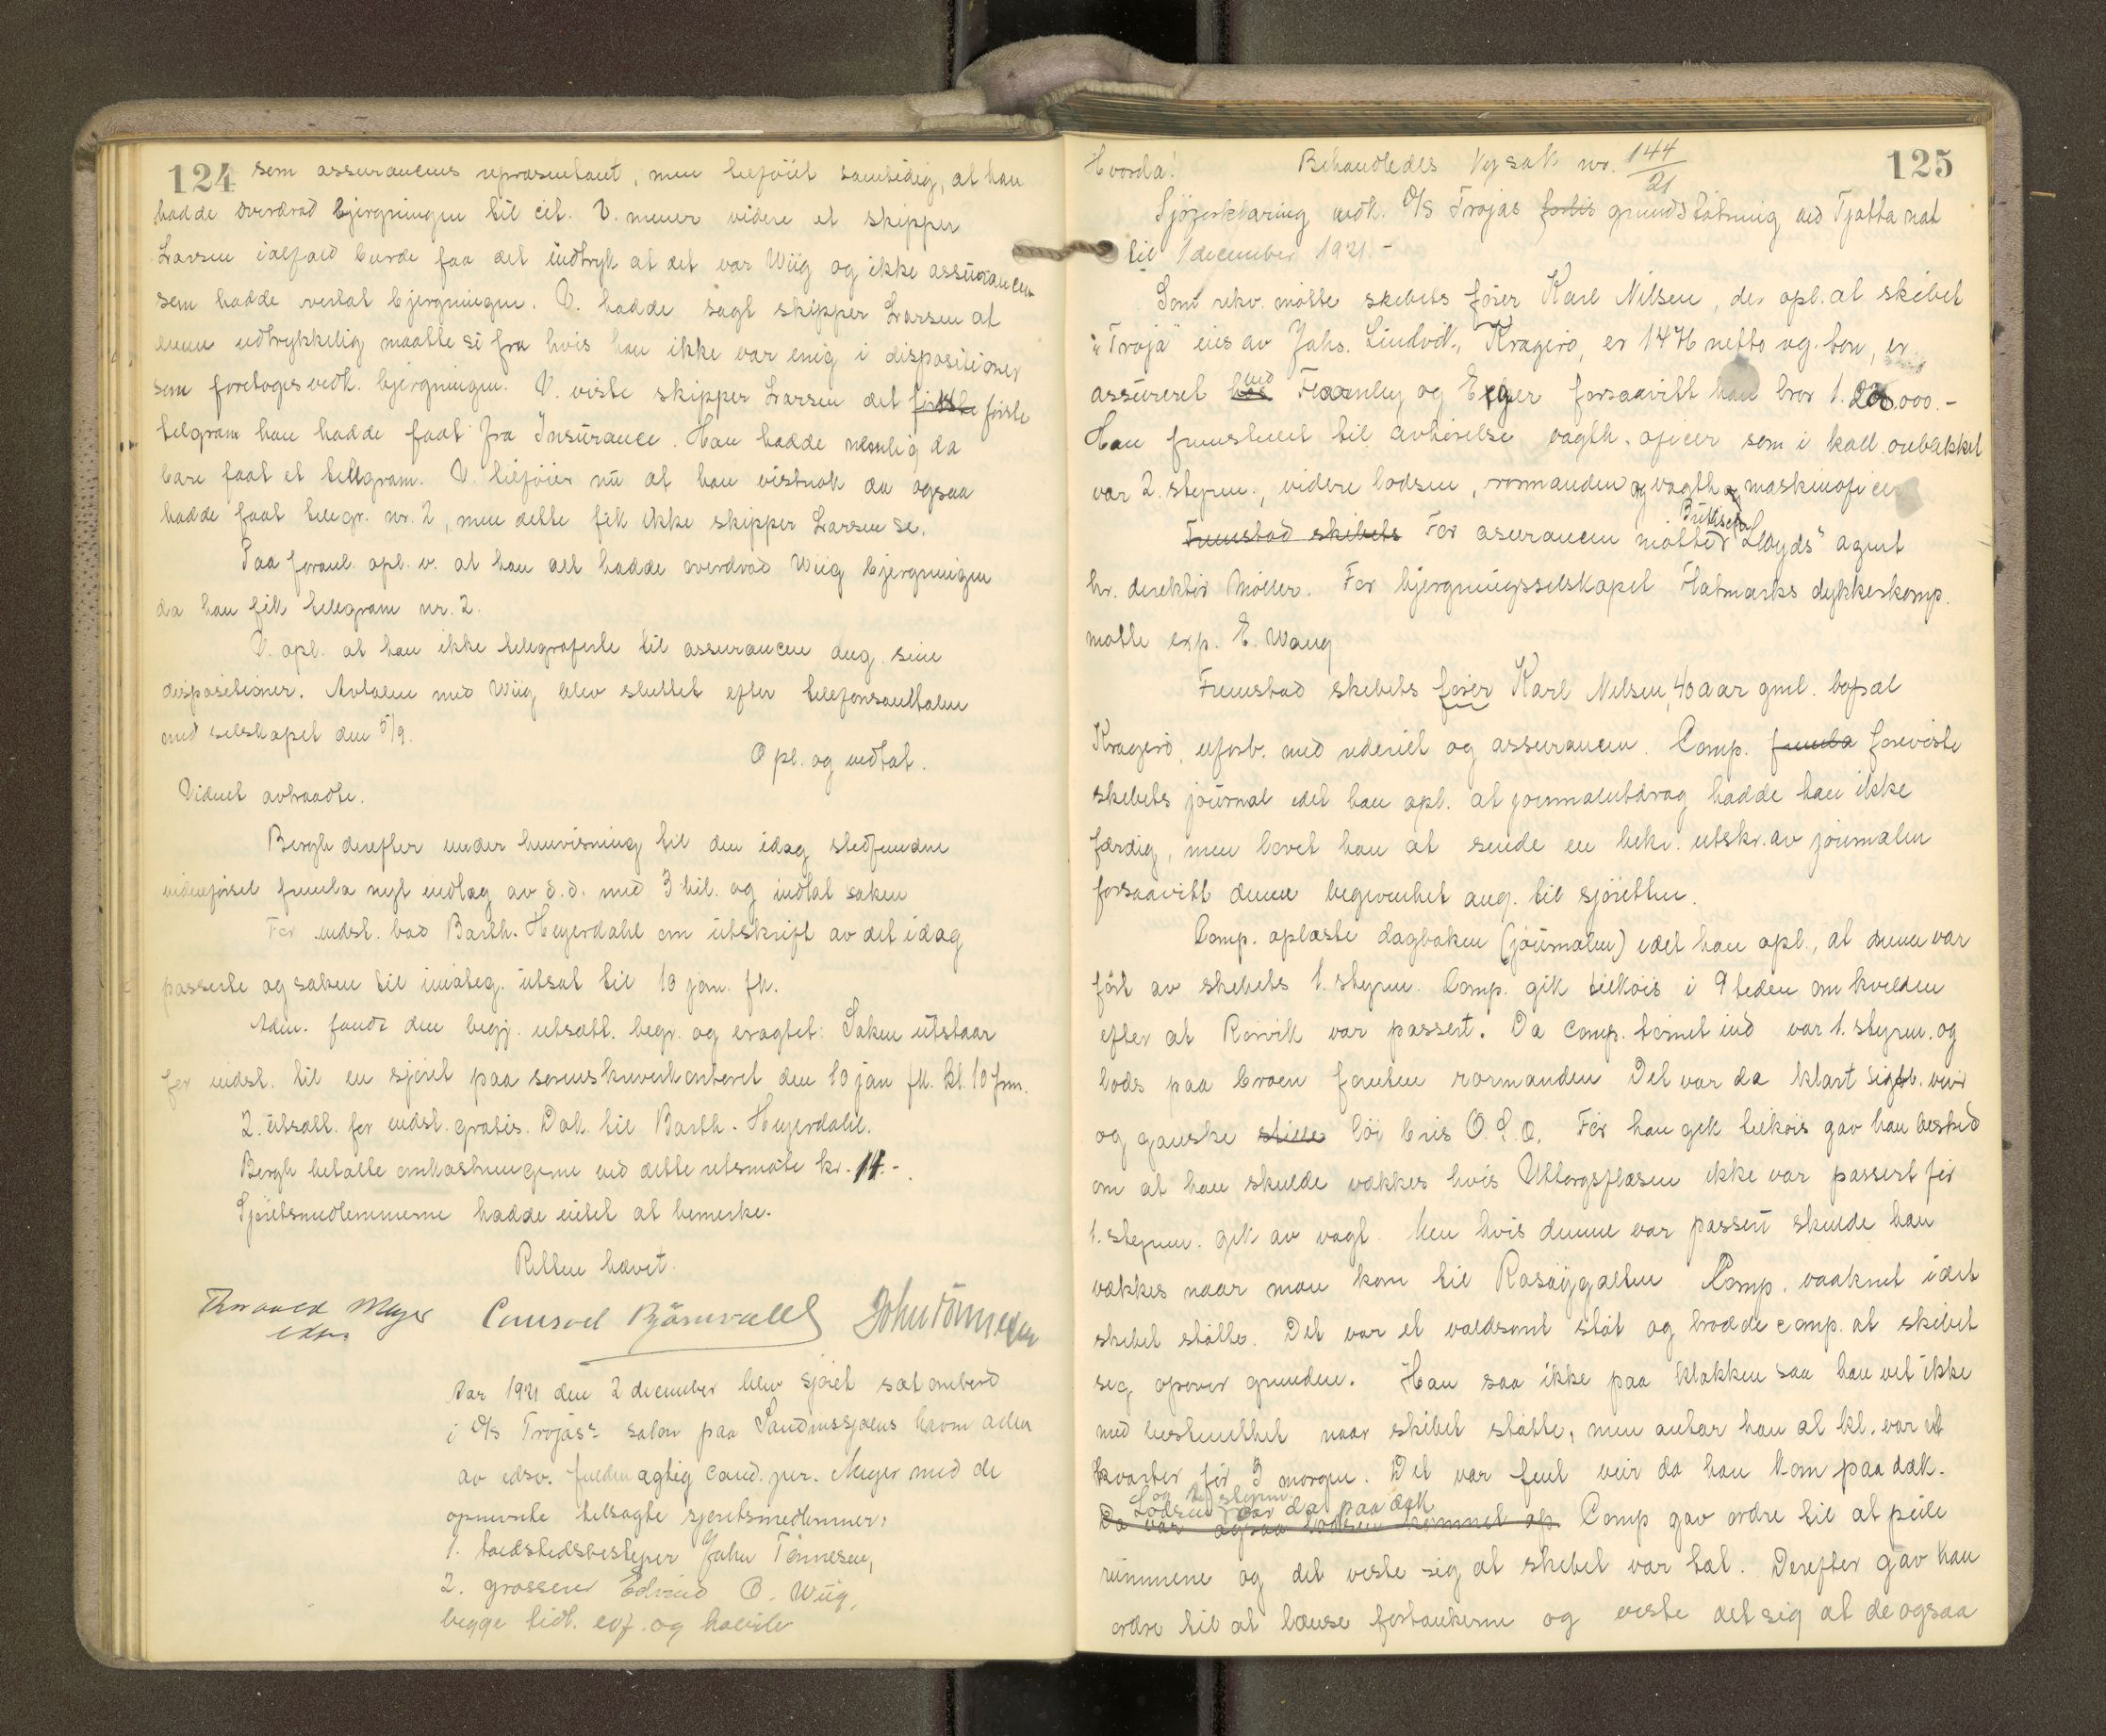 124
som assurancens repræsentant, men tilføiet samtidig, at han
hadde overdrad bjergningen til cit. V. mener videre at skipper
Larsen ialfald burde faa det indtryk at det var Wiig og ikke assurancen
som hadde vertat bjergningen. V. hadde sagt skipper Larsen at
denne udtrykkelig maatte si fra hvis han ikke var enig i dispositioner
som foretoges vedk. bjergningen. V. viste skipper Larsen det første første
telgram han hadde faat fra Insurance. Han hadde nemlig da
bare faat et tellgram. V. tilføier nu at han vistnok da ogsaa
hadde faat telegr. nr. 2, men dette fik ikke skipper Larsen se.
Paa foranl. opl. v. at han alt hadde overdrad Wiig bjergningen
da han fik telegram nr. 2.
V. opl. at han ikke telegraferte til assurancen ang. sine
dispositioner. Avtalen med Wiig blev sluttet efter telefonsamtalen
med selskapet den 5/9.
Opl. og vedtat.
Vidnet avtraadte.
Bergh derefter under henvisning til den idag stedfundne
vidneførsel fremla nyt indlæg av d.d. med 3 bil. og indlot saken
For indst. bad Barth. Heyerdahl om utskrift av det idag
passerte og saken til imøteg. utsat til 10 jan. fk.
Adm. fandt den begj. utsætt. begr. og eragtet: Saken utstaar
for indst. til en sjøret paa sorenskriverkontoret den 10 jan fk. kl. 10 fm.
2. utsætt. for indst. gratis. Dok. til Barth. Heyerdahl.
Bergh betalte omkostningerne ved dette retsmøte kr. 14.-
Sjøretsmedlemmerne hadde intet at bemerke.
Retten hævet.
Thorvald Meyer
edsv.
Conrad Bjørnvall
John Tønnesen
Aar 1921 den 2 december blev sjøret sat ombord
i D/S "Trojas" salon paa Sandnessjøens havn adm
av edsv. fuldmægtig cand. jur. Meyer med de
opnevnte tilsagte sjøretsmedlemmer:
1. toldstedsbestyrer John Tønnesen,
2. grosserer Edvind O. Wiig,
begge tidl. edf. og habile
125
Hvorda!
Behandledes Vgsak nr. 144/21
Sjøforklaring vedk. D/S Trojas forlis grundstøtning ved Tjøtta nat
til 1 december 1921.-
Som rekv. møtte skibets fører Karl Nilsen, der opl. at skibet
"Troja" eies av Johs. Lindvik, Kragerø, er 1476 netto rg. ton, er
assureret hos ved Fearnley og Eger forsaavitt han tror 1.200.000.-
Han fremstillet til avhørelse vagth. oficer som i kall. øieblikket
var 2. styrm., videre lodsen, rormanden og vagth. maskinoficer
Fremstod skibets For asurancen møtte "Britisch Lloyds" agent
hr. direktør Møller. For bjergningsselskapet Flatmarks dykkerkomp.
møtte exp. E. Wang
Fremstod skibets fører Karl Nilsen, 40 aar gml. bopæl
Kragerø, uforb. med rederiet og assurancen. Comp. fremla foreviste
skibets journal idet han opl. at journalutdrag hadde han ikke
færdig, men lovet han at sende en bekr. utskr. av journalen
forsaavitt denne begivenhet ang. til sjøretten.
Comp. oplæste dagboken (journalen) idet han opl., at denne var
ført av skibets 1. styrm. Comp. gik tilkøis i 9 tiden om kvelden
efter at Rørvik var passert. Da comp. tørnet ind var 1. styrm. og
lods paa broen foruten rormanden Det var da klart sigtb. veir
og ganske stille løi bris O.S.O. Før han gik tilkøis gav han besked
om at han skulde vækkes hvis Ytterholmen ikke var passert før
1. styrm. gik av vagt. Men hvis denne var passert skulde han
vækkes naar man kom til Rosøygalten Comp. vaaknet idet
skibet støtte. Det var et voldsomt støt og trodde comp. at skibet
seg opover grunden. Han saa ikke paa klokken saa han vet ikke
med bestemthet naar skibet støtte, men antar han at kl. var et
kvarter før 3 morgen. Det var fint veir da han kom paa dæk.
Lodsen og 1. styrm. var da paa dæk
Da var ogsaa lodsen kommet op. Comp gav ordre til at peile
rummene og det viste sig at skibet var tæt. Derefter gav han
ordre til at lænse fortankerne og viste det sig at de ogsaa